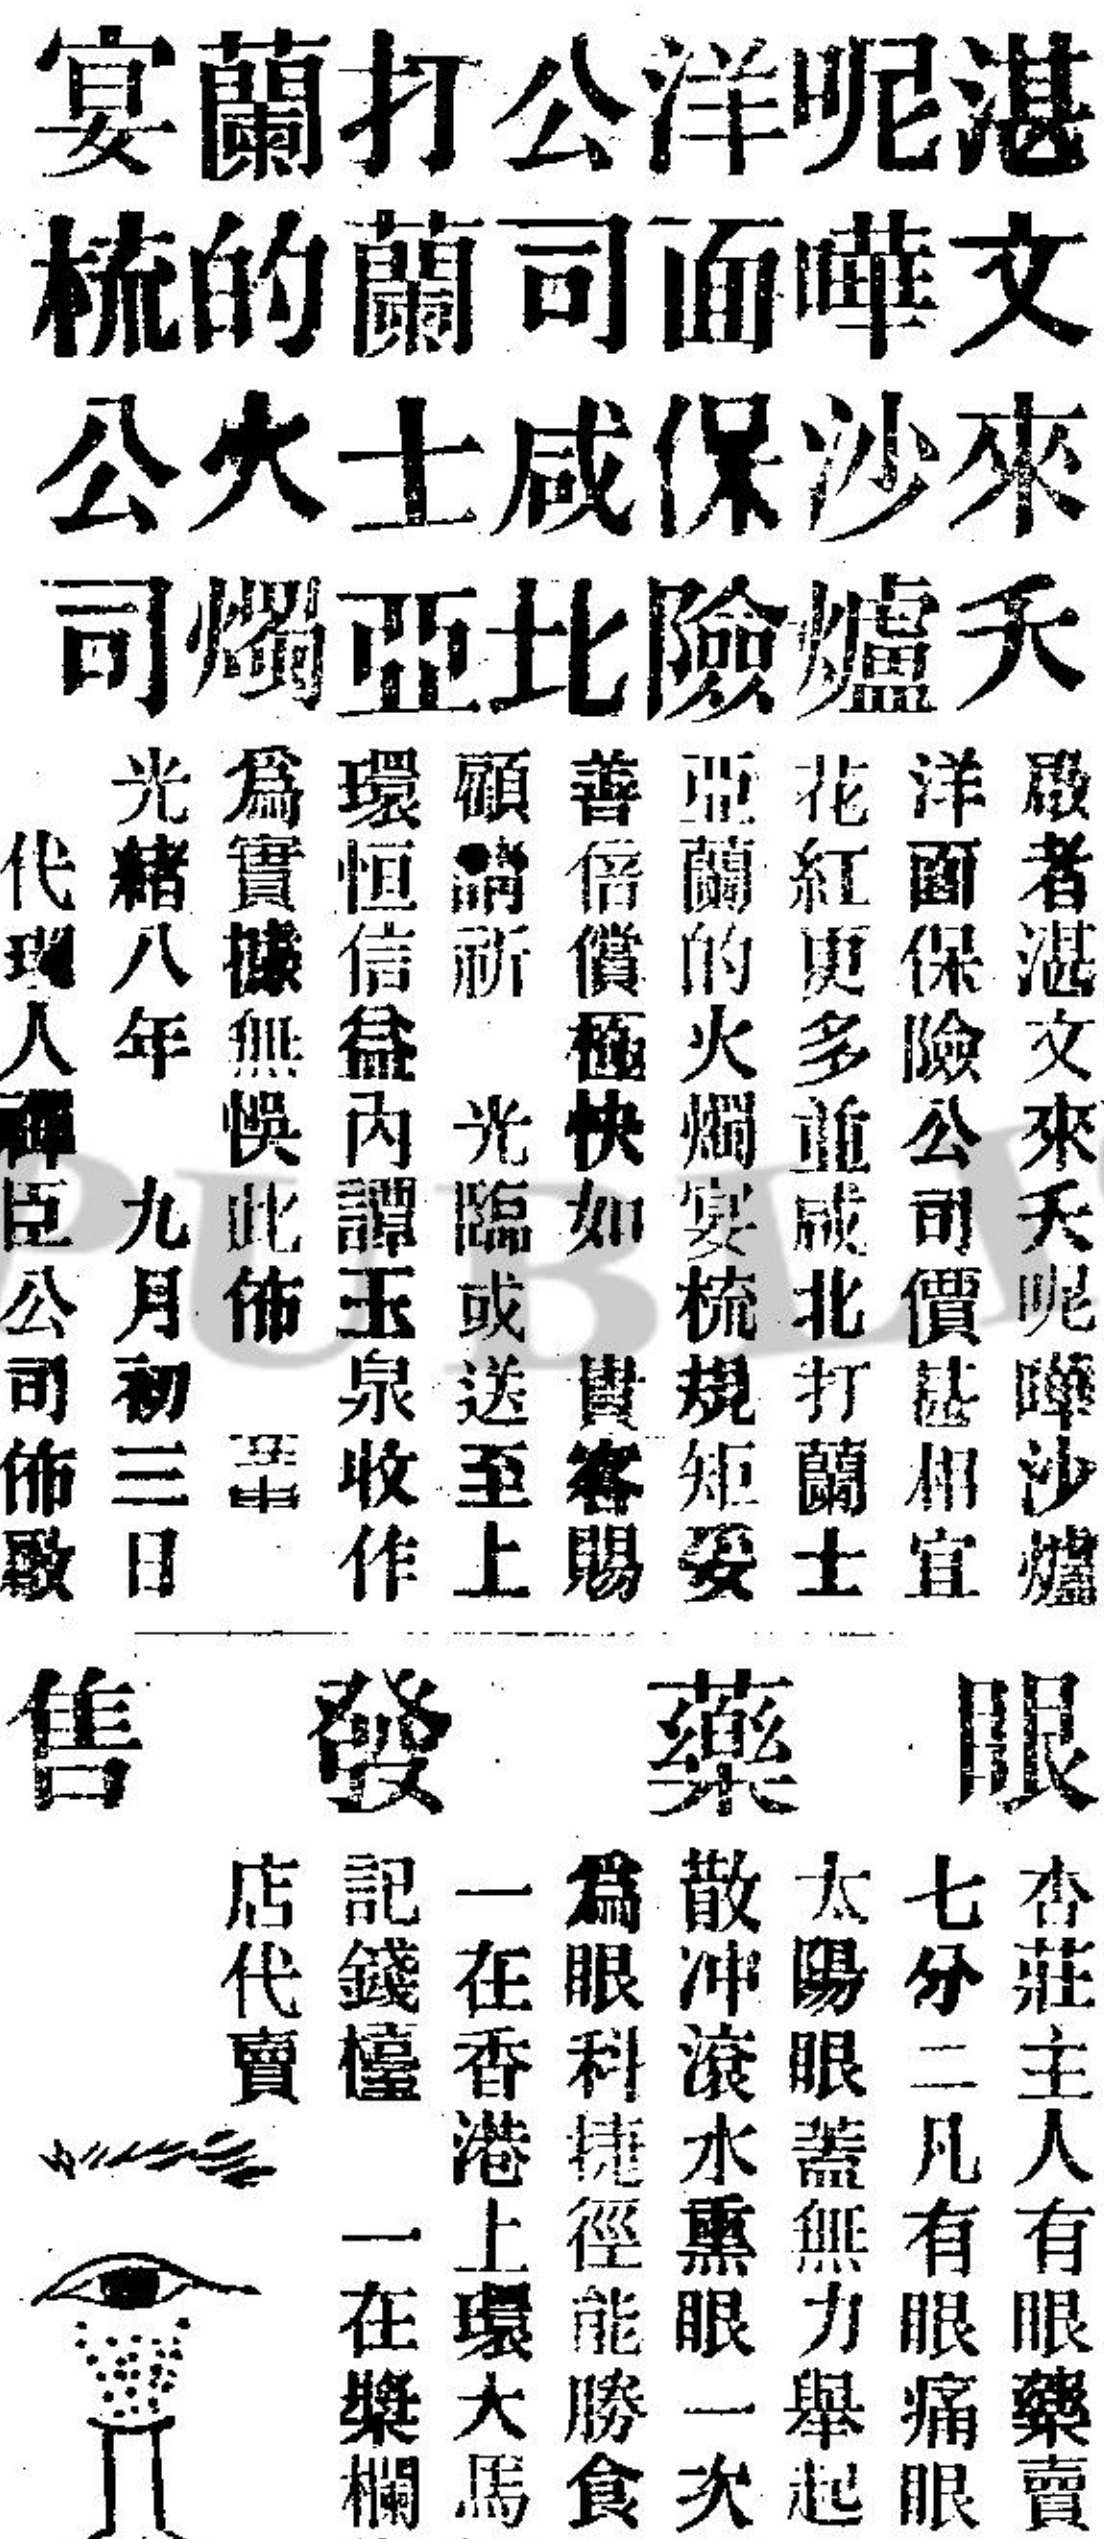 湛文來夭
呢嘩沙爐
洋面保險
公司咸北
打蘭士亞
蘭的火燭
宴梳公司
啟者湛文來夭呢嘩沙爐
洋面保險公司價甚相宜
花紅更多並咸北打蘭士
亞蘭的火燭宴梳規矩妥
善倍償極快如 貴客賜
顧請祈 光臨或送至上
環恒信益內譚玉泉收作
爲實據無悞此佈
光緒八年 九月初三日
代理人禪臣公司佈啟
眼藥發售
杏莊主人有眼藥賣
七分二凡有眼痛眼
太陽眼蓋無力舉起
散冲滾水熏眼一次
爲眼科捷徑能勝食
一在香港上環大馬
記錢檯 一在槳欄
店代賣
PUBLI